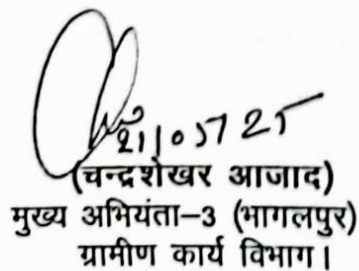 21/05/25
(चन्द्रशेखर आजाद)
मुख्य अभियंता-3 (भागलपुर)
ग्रामीण कार्य विभाग।